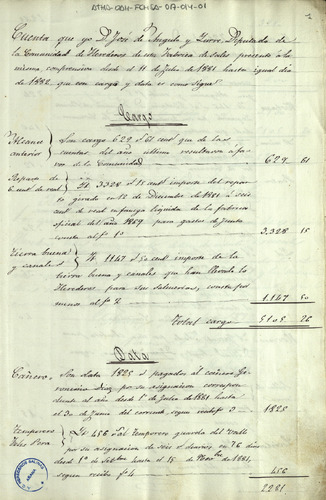 ATHA-DAH-FCHSA-017-014-01
1
Cuenta que yo D. José de Angulo y Yurre, Diputado de
la Comunidad de Herederos de esta Fabrica de sales presento á la
misma comprension desde el 11 de Julio de 1881 hasta igual dia
de 1882, que con cargo y data es como sigue
Cargo
Alcance anterior } Son cargo 629 r. 61 cent. que de la
cuenta del año ultimo resultaron á fa-
vor de la Comunidad 629 61
Reparto de 6 cent. de real } Id. 3328 r. 15 cent. importe del repar-
to girado en 12 de Diciembre de 1881 á seis
cent. de real en fanega liquida de la fabrica
oficial del año 1869 para gastos de Junta
consta al nº 1º 3,328 15
Tierra buena y canales } Id. 1147 r. 50 cent. importe de la
tierra buena y canales que han llevado los
Herederos para sus salineros, consta por
menor al nº 2 1.147 50
Total cargo 5105 26
Data
Cañero. Son data 1825 r. pagados al cañero
Diaz por su asignacion correspon-
diente al año desde 1º de Julio de 1881 hasta
el 30 de Junio del corriente segun recibo 3 1825
Temporero } Id. 456 r. al temporero guarda del valle
por su asignacion de seis r. diarios, en 76 dias
desde 1º de Setbre. hasta el 15 de Novbre. de 1881,
segun recibo nº 4 456
2281